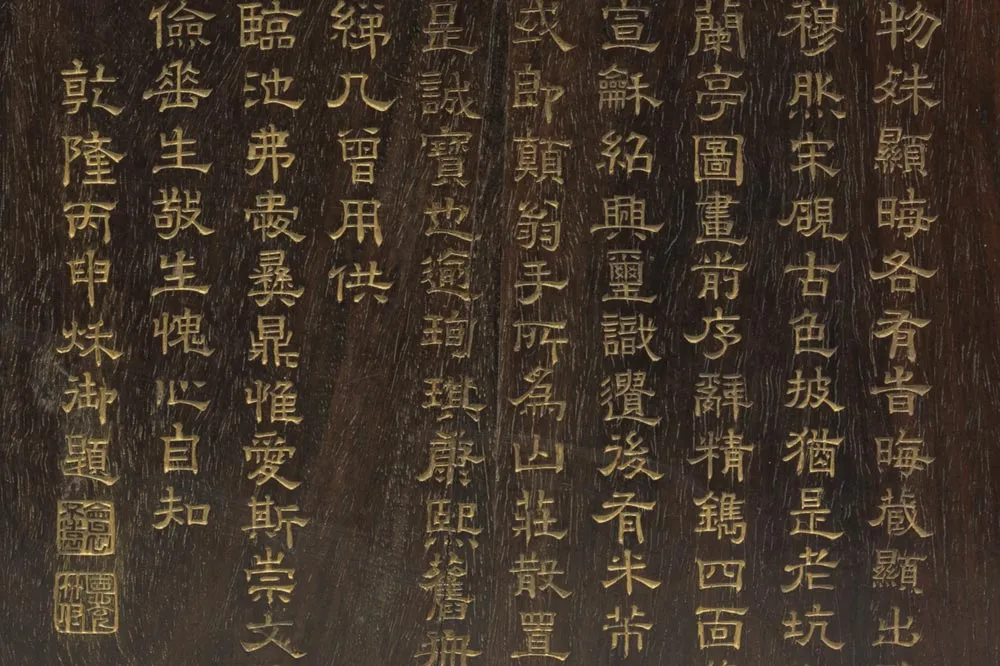 物殊顯晦各有旹晦蔵顯出
穆然宋硯古色披猶是老坑
蘭亭圖畫前序辭精鐫四面
宣龢紹興璽識後有米芾
或即顛翁手所為山莊散置
是誠寶也逾珣琪康熙舊冊
綈几曾用供
臨池弗彝鼎惟愛斯崇文
儉生敬生愧心自知
乾隆丙申秋御題
會心不遠
德充符